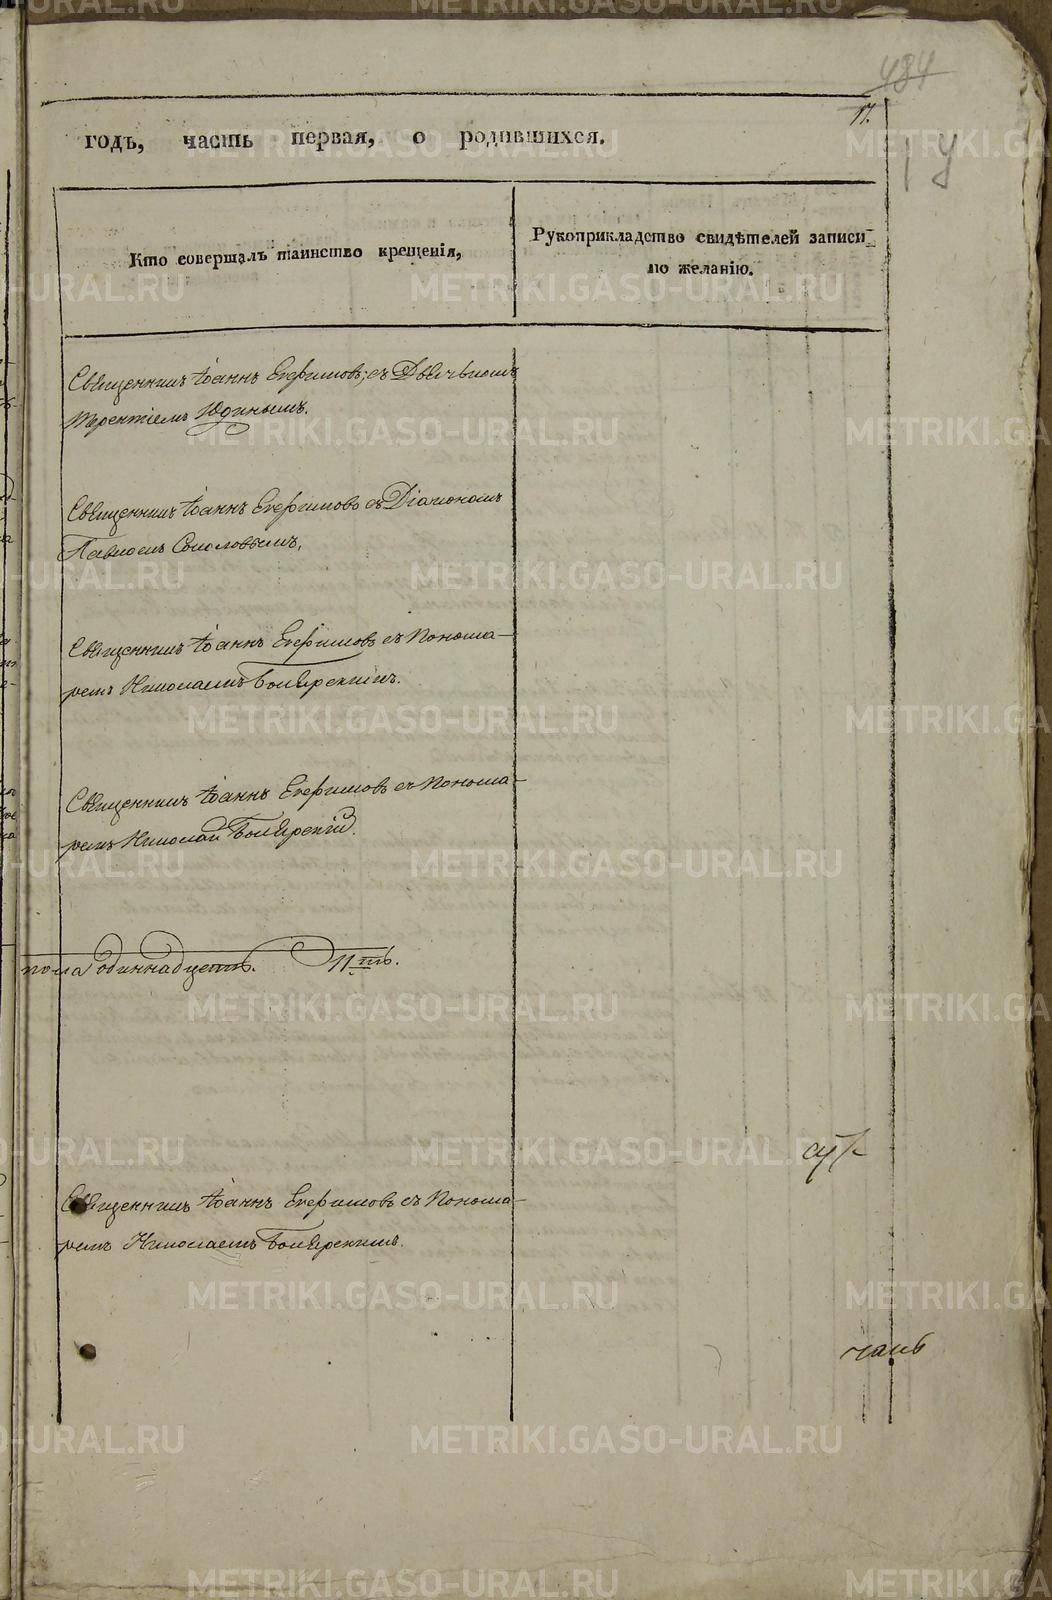 484
17.
годъ, часть первая, о родившихся.
Кто совершалъ таинство крещенія,
Рукоприкладство свидѣтелей записи
по желанію.
Священникъ Іоаннъ Евфимовъ, съ Дьячькомъ
Терентіемъ Юдинымъ.
Священникъ Іоаннъ Евфимовъ съ Діакономъ
Павломъ Соколовымъ,
Священникъ Іоаннъ Евфимовъ съ Понома-
ремъ Николаемъ Боярскимъ.
Священникъ Іоаннъ Евфимовъ съ Понома-
ремъ Николай Боярскій.
пола одиннадцать. 11ть.
Священникъ Іоаннъ Евфимовъ съ Понома-
ремъ Николаемъ Боярскимъ.
METRIKI.GASO-URAL.RU